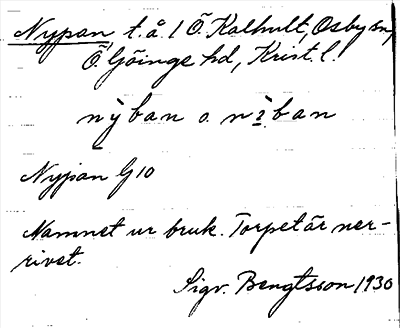 Nypan t.å. 1 Ö. Kalhult, Osby sn,
Ö. Göinge hd, Krist. l.
nỳban o. nìban
Nypan G 10
Namnet ur bruk. Torpet är ner-
rivet.
Sigv. Bengtsson 1930